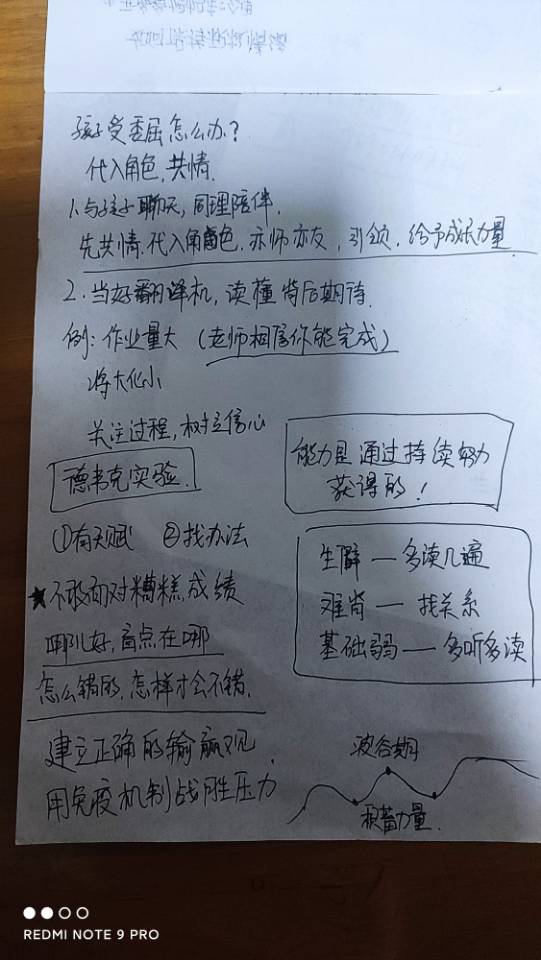 孩子受委屈怎么办?
代入角色,共情.
1.与孩子聊天,同理陪伴.
先共情.代入角色,亦师亦友,引领,给予成长力量
2.当好翻译机,读懂背后期待.
例:作业量大(老师相信你能完成)
将大化小
关注过程,树立信心
德韦克实验.
能力是通过持续努力
获得的!
①有天赋 ②找办法
★不敢面对糟糕成绩
哪儿好,盲点在哪
怎么错的,怎样才会不错.
建立正确的输赢观.
用免疫机制战胜压力
生僻—多读几遍
难背—找关系
基础弱—多听多读
波谷期
积蓄力量.
REDMI NOTE 9 PRO